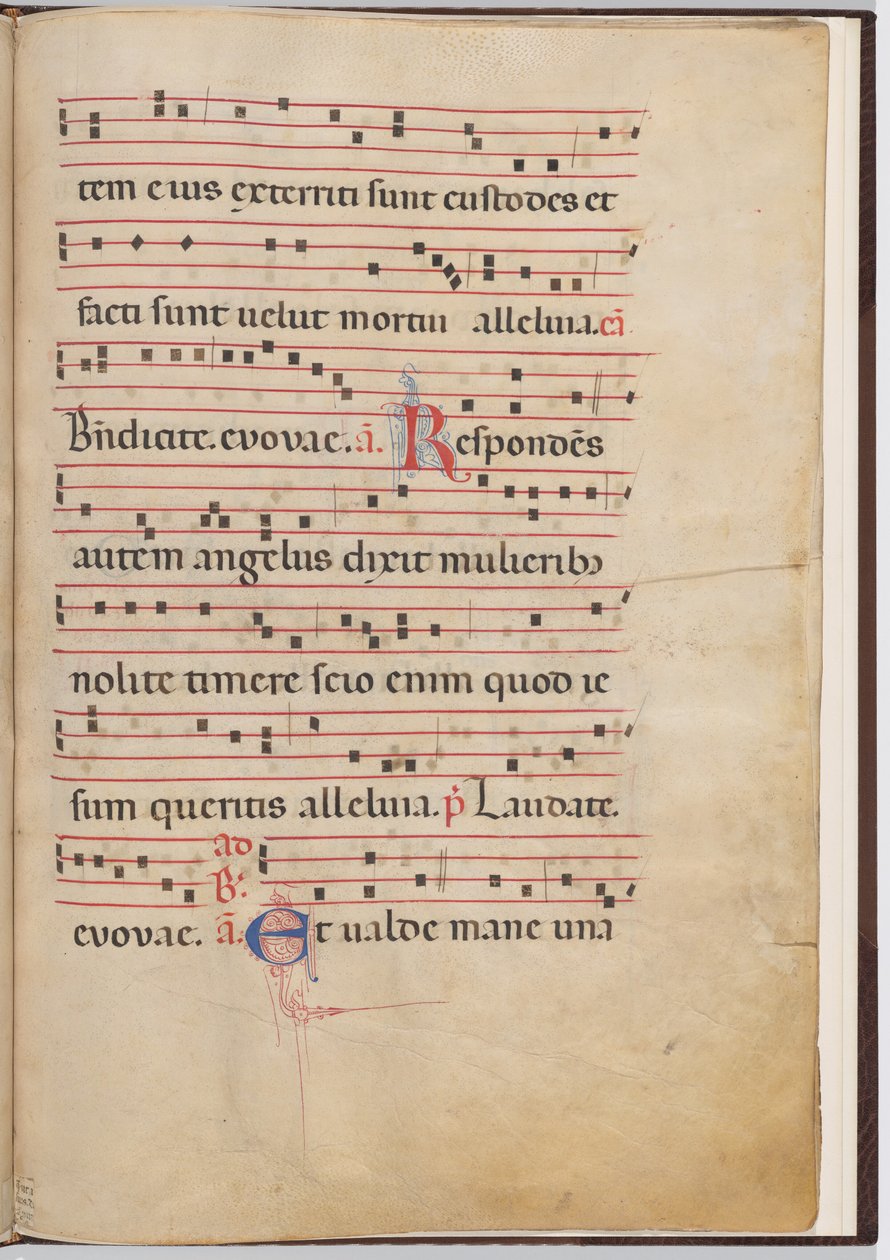 tem eius exterriti sunt custodes et
facti sunt uelut mortui alleluia. cā
Bn̄dicite. evovae. ā. Respondēs
autem angelus dixit mulieribꝫ
nolite timere scio enim quod ie
sum queritis alleluia. p̄ Laudate.
evovae. ad B: ā. Et ualde mane una